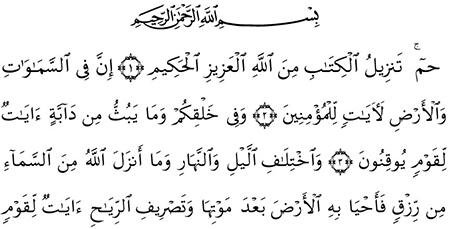 بِسْمِ ٱللَّهِ ٱلرَّحْمَٰنِ ٱلرَّحِيمِ
حمٓ ۚ تَنزِيلُ ٱلْكِتَٰبِ مِنَ ٱللَّهِ ٱلْعَزِيزِ ٱلْحَكِيمِ ﴿١﴾ إِنَّ فِى ٱلسَّمَٰوَٰتِ
وَٱلْأَرْضِ لَءَايَٰتٍ لِّلْمُؤْمِنِينَ ﴿٢﴾ وَفِى خَلْقِكُمْ وَمَا يَبُثُّ مِن دَآبَّةٍ ءَايَٰتٌ
لِّقَوْمٍ يُوقِنُونَ ﴿٣﴾ وَٱخْتِلَٰفِ ٱلَّيْلِ وَٱلنَّهَارِ وَمَآ أَنزَلَ ٱللَّهُ مِنَ ٱلسَّمَآءِ
مِن رِّزْقٍ فَأَحْيَا بِهِ ٱلْأَرْضَ بَعْدَ مَوْتِهَا وَتَصْرِيفِ ٱلرِّيَٰحِ ءَايَٰتٌ لِّقَوْمٍ